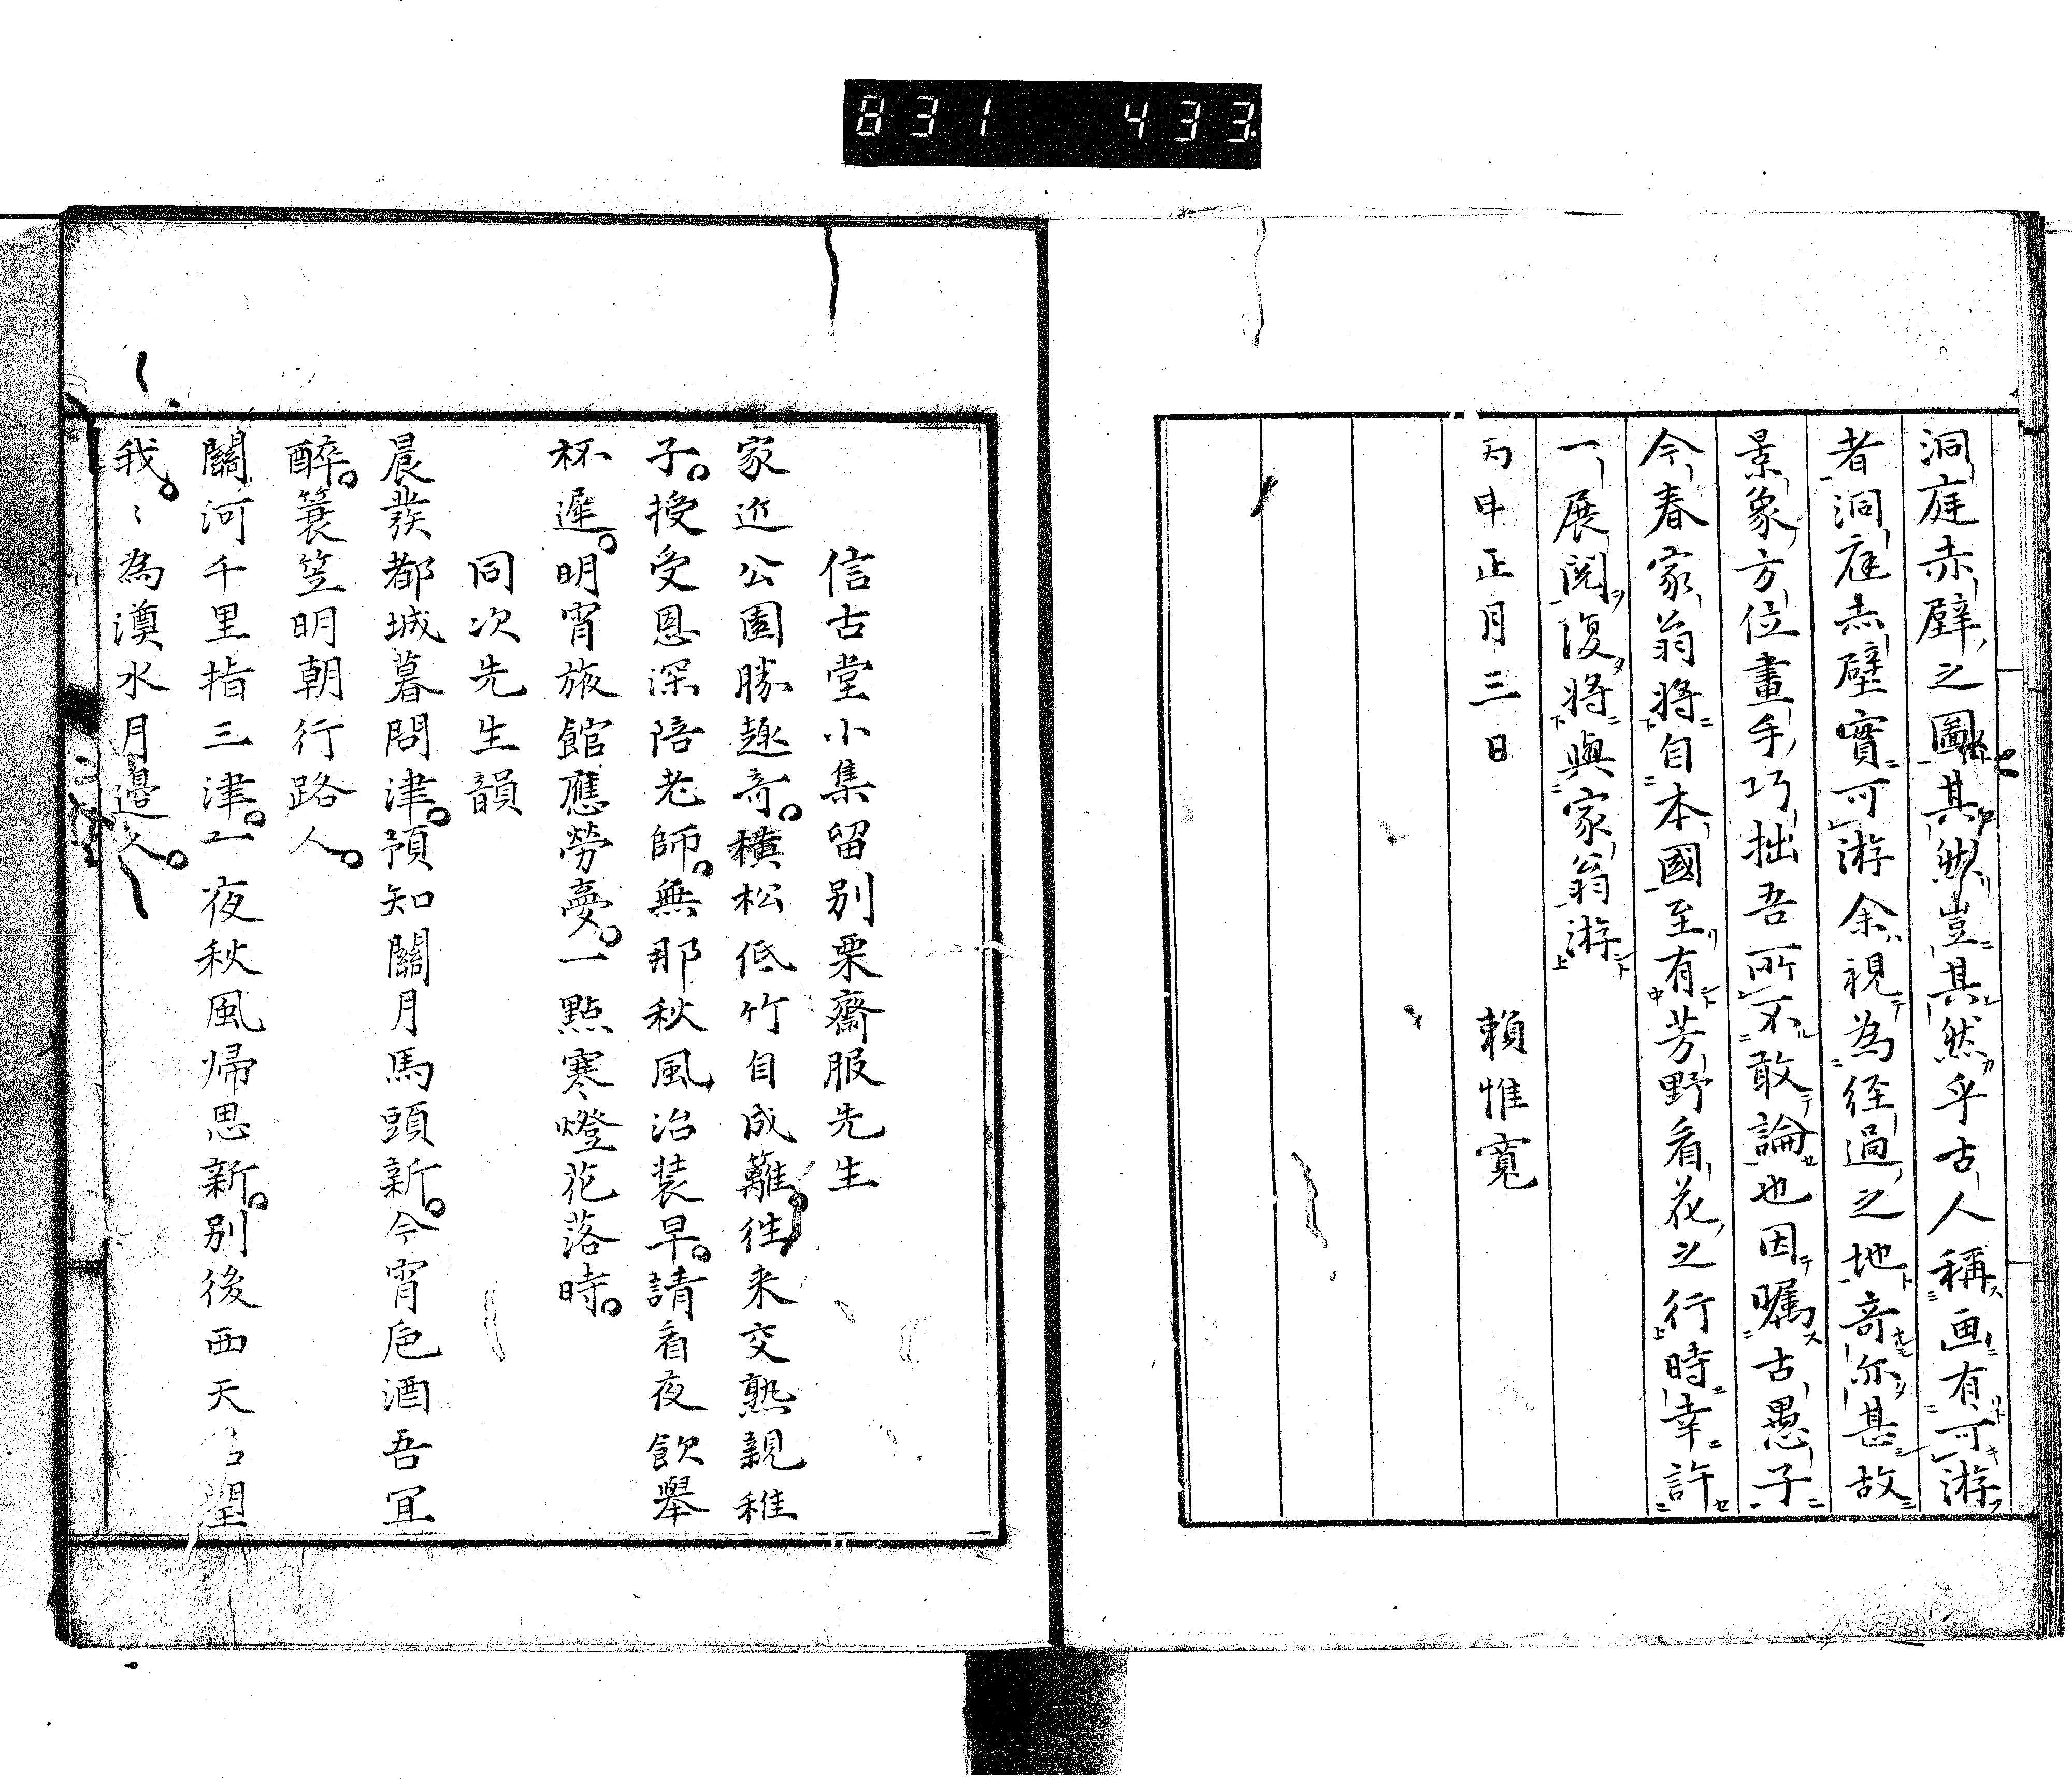 831 433
洞庭赤壁之圖其然豈其然乎古人稱画有可游
者洞庭赤壁實可游余視為徑過之地奇尓甚故
景象方位畫手巧拙吾所不敢論也因矚古愚子
今春家翁將自本國至有芳野看花之行時幸許
一展閲復將與家翁游
丙申正月三日 賴惟寬
信古堂小集留别栗齋服先生
家近公園勝趣奇橫松低竹自成籬往来交熟親稚
子授受恩深陪老師無那秋風治装早請看夜飲舉
杯遲明宵旅館應勞夢一點寒燈花落時
同次先生韻
晨發都城暮問津預知關月馬頭新今宵巵酒吾宜
醉簑笠明朝行路人
關河千里指三津一夜秋風帰思新别後西天望
我〻為澳水月邊人